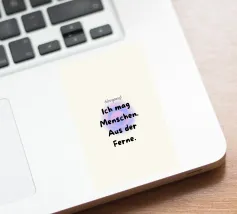 Ich mag
Menschen.
Aus der
Ferne.